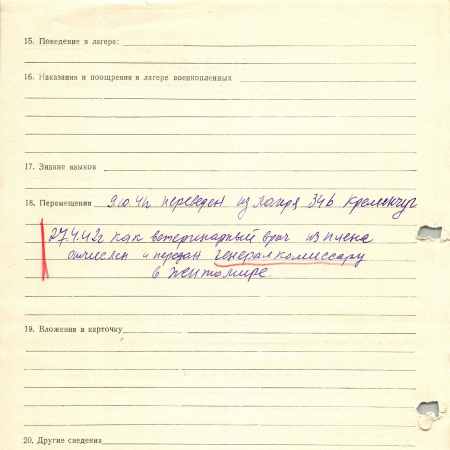 15. Поведение в лагере:
16. Наказания и поощрения в лагере военнопленных
17. Знание языков
18. Перемещения 9.10.41г переведен из лагеря 346 Кременчуг
27.4.42г как ветеринарный врач из плена
отчислен и передан генералкомиссару
в Житомире.
19. Вложения в карточку
20. Другие сведения